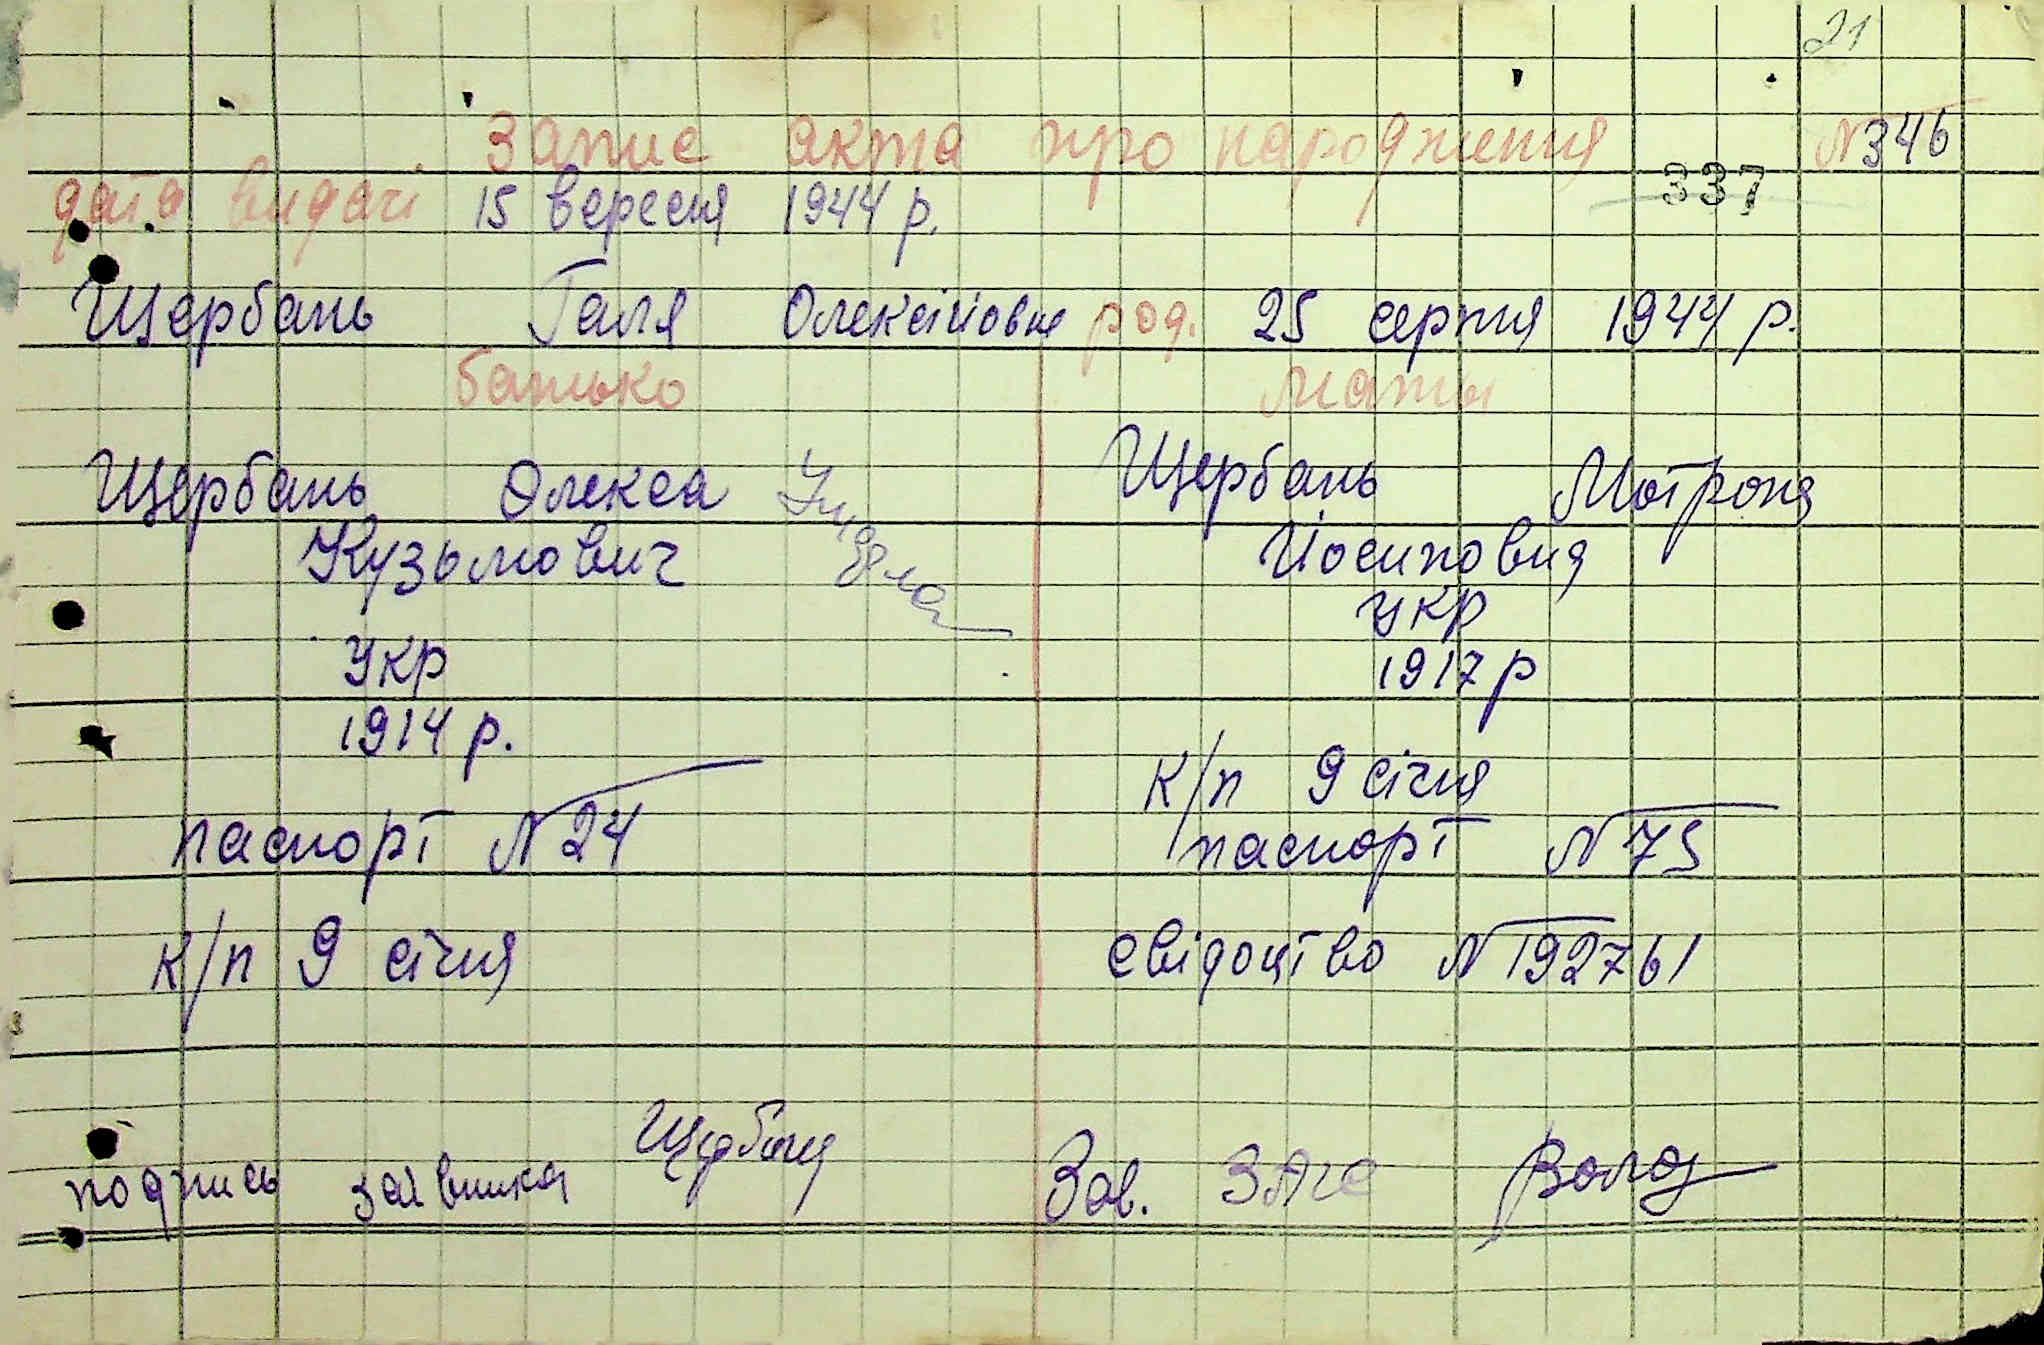 21
Запис акта про народження №346
337
дата видачі 15 вересня 1944 р.
Щербань Галя Олексіївна род. 25 серпня 1944 р.
батько мати
Щербань Олекса Щербань Мотрона
Кузьмович Йосиповна
укр укр
1914 р. 1917 р
паспорт №24 к/п 9 січня
паспорт №75
к/п 9 січня свідоцтво №192761
подпись заявника Щербань Зав. ЗАГС